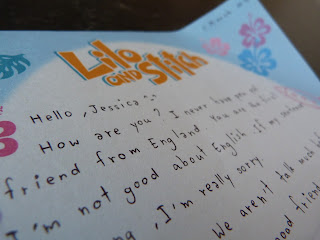 Lilo
AND Stitch
Hello, Jessica
How are you? I never have pen pal
friend from England. You are the first
I'm not good about English. If my sentence
, I'm really sorry.
We aren't talk much
good friend